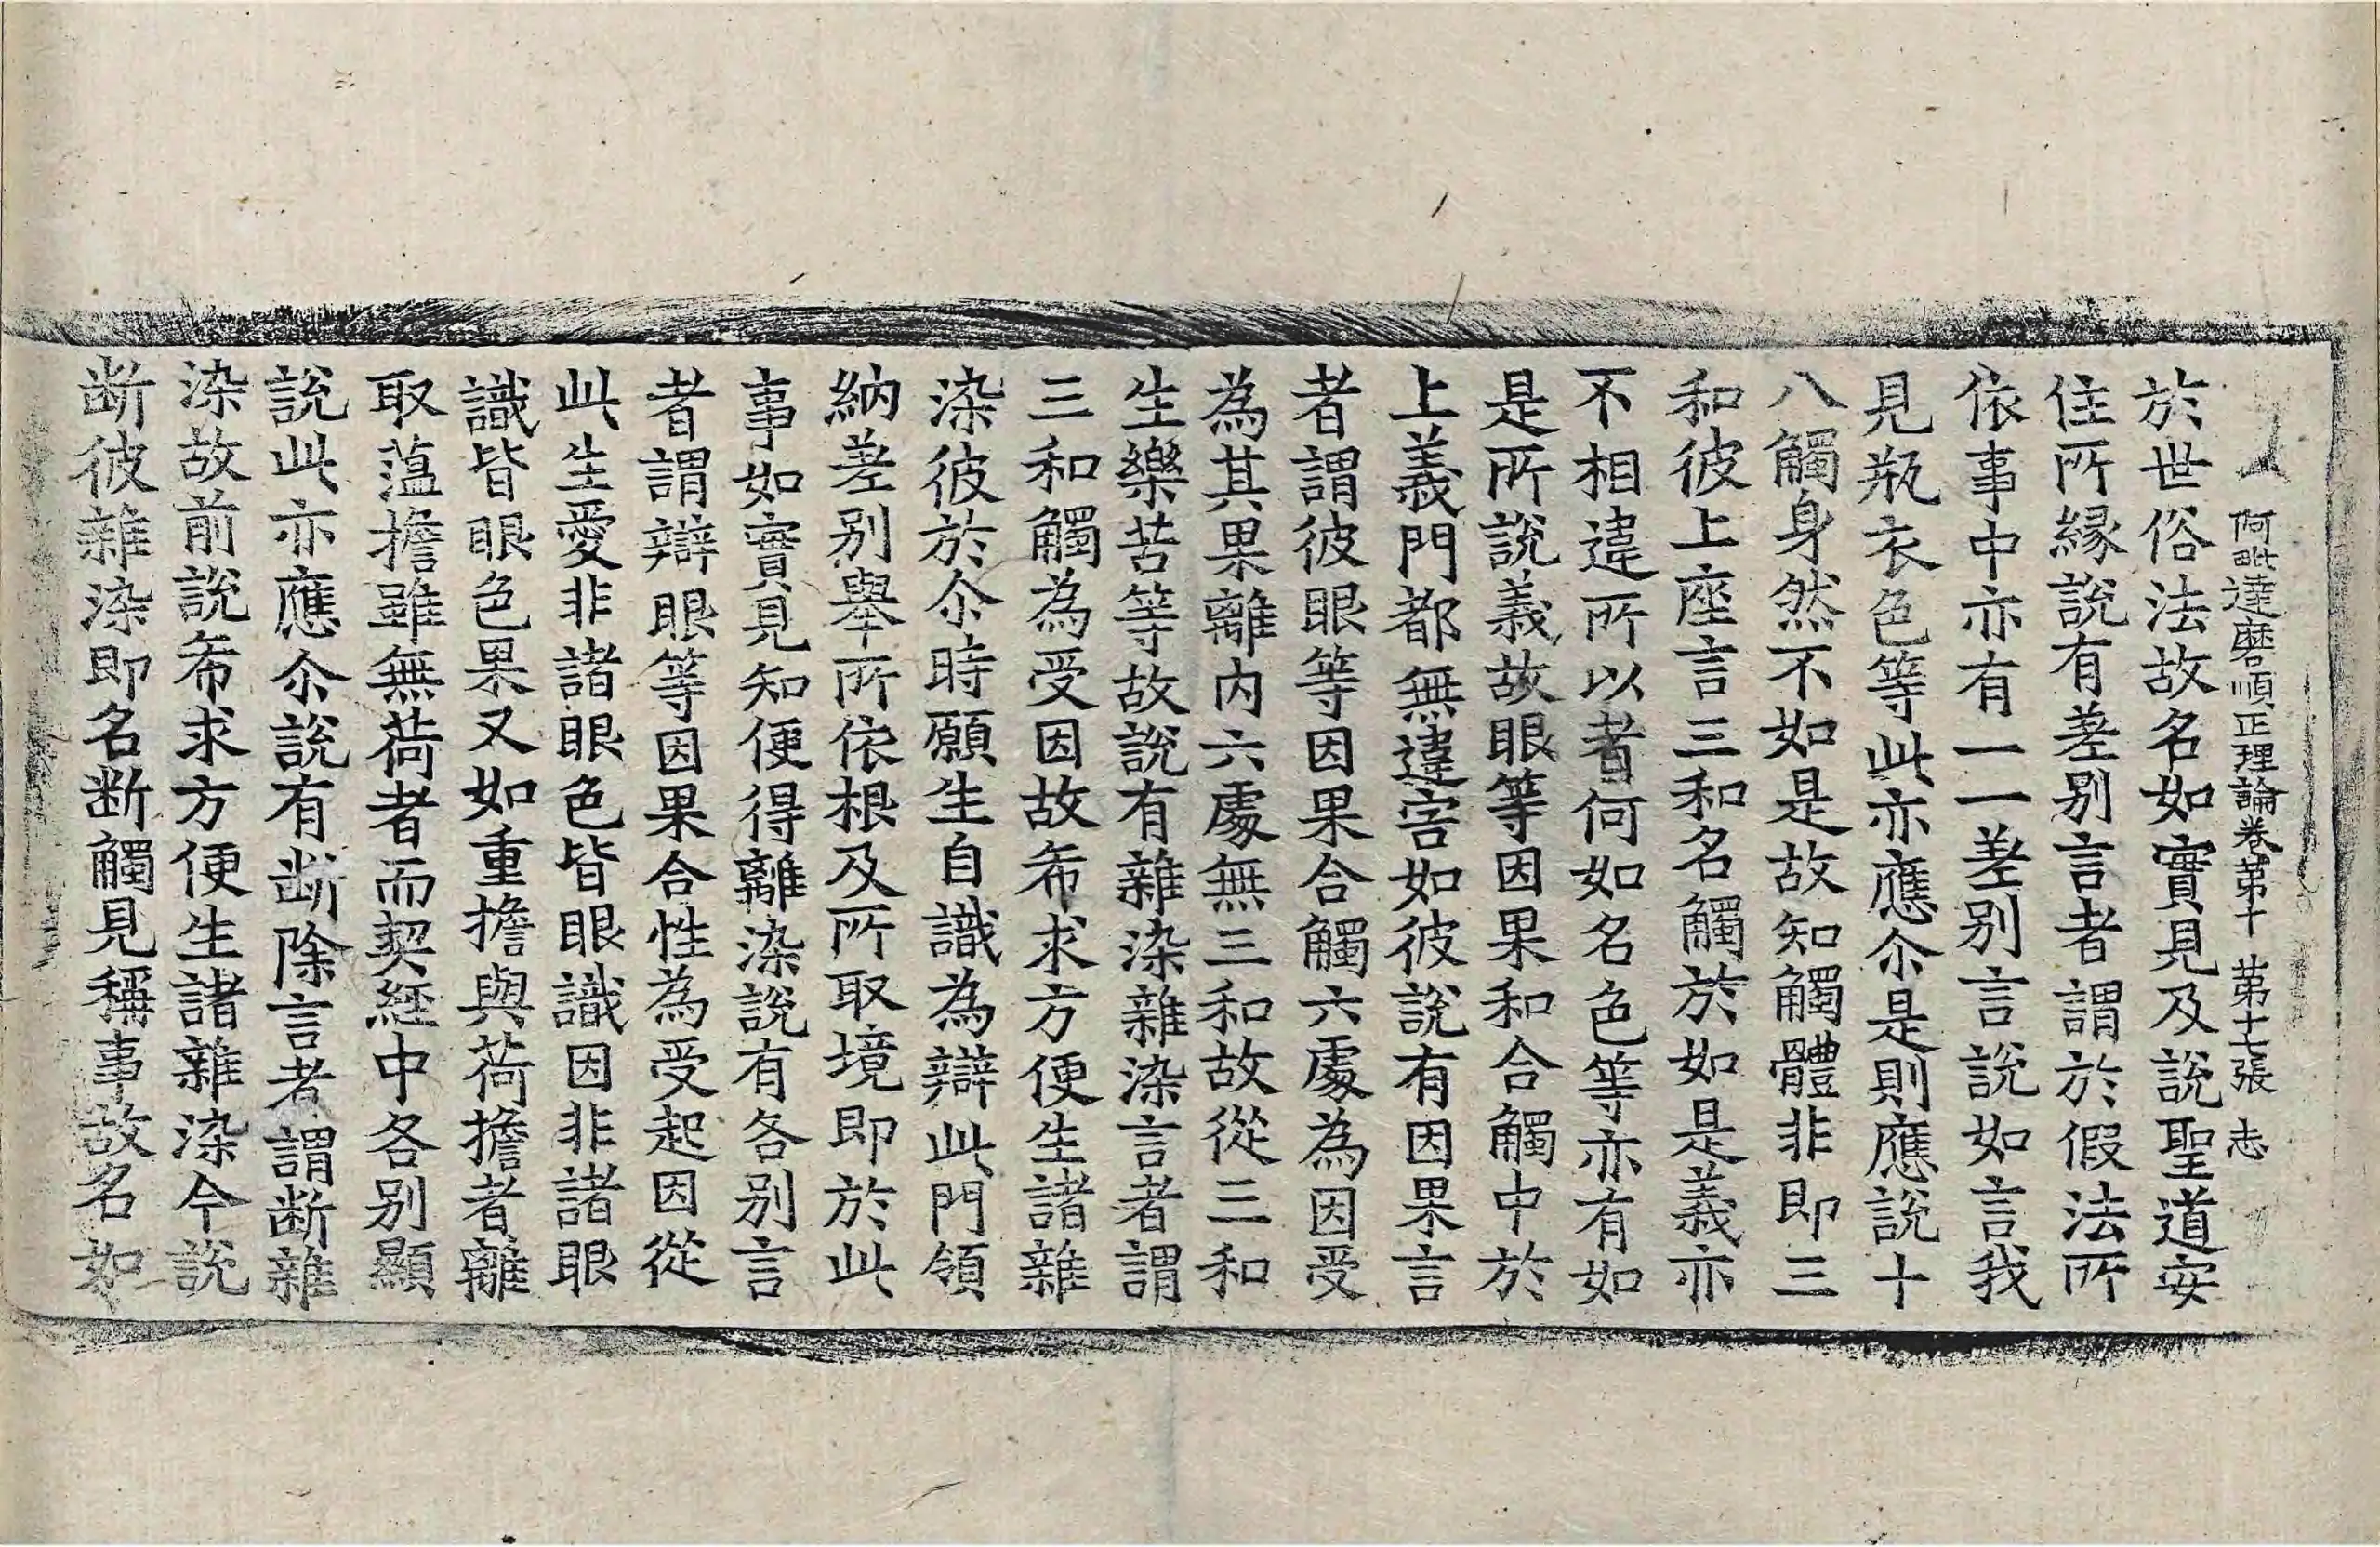 阿毗達磨順正理論卷第十 第十七張 志
於世俗法故名如實見及說聖道安
住所緣說有差别言者謂於假法所
依事中亦有一一差别言說如言我
見瓶衣色等此亦應尒是則應說十
八觸身然不如是故知觸體非即三
和彼上座言三和名觸於如是義亦
不相違所以者何如名色等亦有如
是所說義故眼等因果和合觸中於
上義門都無違害如彼說有因果言
者謂彼眼等因果合觸六處為因受
為其果離內六處無三和故從三和
生樂苦等故說有雜染雜染言者謂
三和觸為受因故希求方便生諸雜
染彼於尒時願生自識為辯此門領
納差别舉所依根及所取境即於此
事如實見知便得離染說有各别言
者謂辯眼等因果合性為受起因從
此生愛非諸眼色皆眼識因非諸眼
識皆眼色果又如重擔與荷擔者離
取薀擔雖無荷者而契經中各别顯
說此亦應尒說有断除言者謂断雜
染故前說希求方便生諸雜染今說
断彼雜染即名断觸見稱事故名如